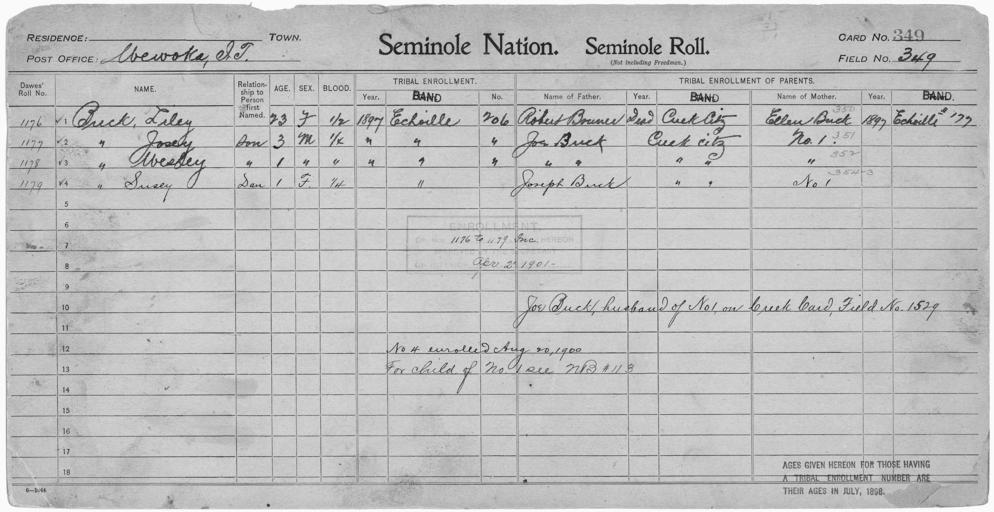 RESIDENCE: TOWN. Seminole Nation. Seminole Roll. CARD No. 349
POST OFFICE: Wewoka, I.T. (Not including Freedmen.) FIELD No. 349
Dawes' Roll No. NAME. Relationship to Person first Named. AGE. SEX. BLOOD. TRIBAL ENROLLMENT. TRIBAL ENROLLMENT OF PARENTS.
Year. BAND No. Name of Father. Year. BAND Name of Mother. Year. BAND.
350
1176 √1 Buck, Liley 23 F 1/2 1897 Echoille 206 Robert Bouner Dead Creek City Ellen Buck 1897 Echoille 177
351
1177 √2 " Josey Son 3 M 1/4 " " " Joe Buck Creek city No. 1.
352
1178 √3 " Wesley " 1 " " " " " " " " " "
354-3
1179 √4 " Susey Dau 1 F. 1/4 " Joseph Buck " " No 1
5
6
ENROLLMENT
7
1176 to 1179 Inc. HEREON
8
Apr 2 1901-
9
10 Joe Buck, husband of No1, on Creek Card, Field No. 1529
11
12 No 4 enrolled Aug 20, 1900
13 For child of No. 1 see NB #113
14
15
16
17
18
AGES GIVEN HEREON FOR THOSE HAVING
A TRIBAL ENROLLMENT NUMBER ARE
THEIR AGES IN JULY, 1898.